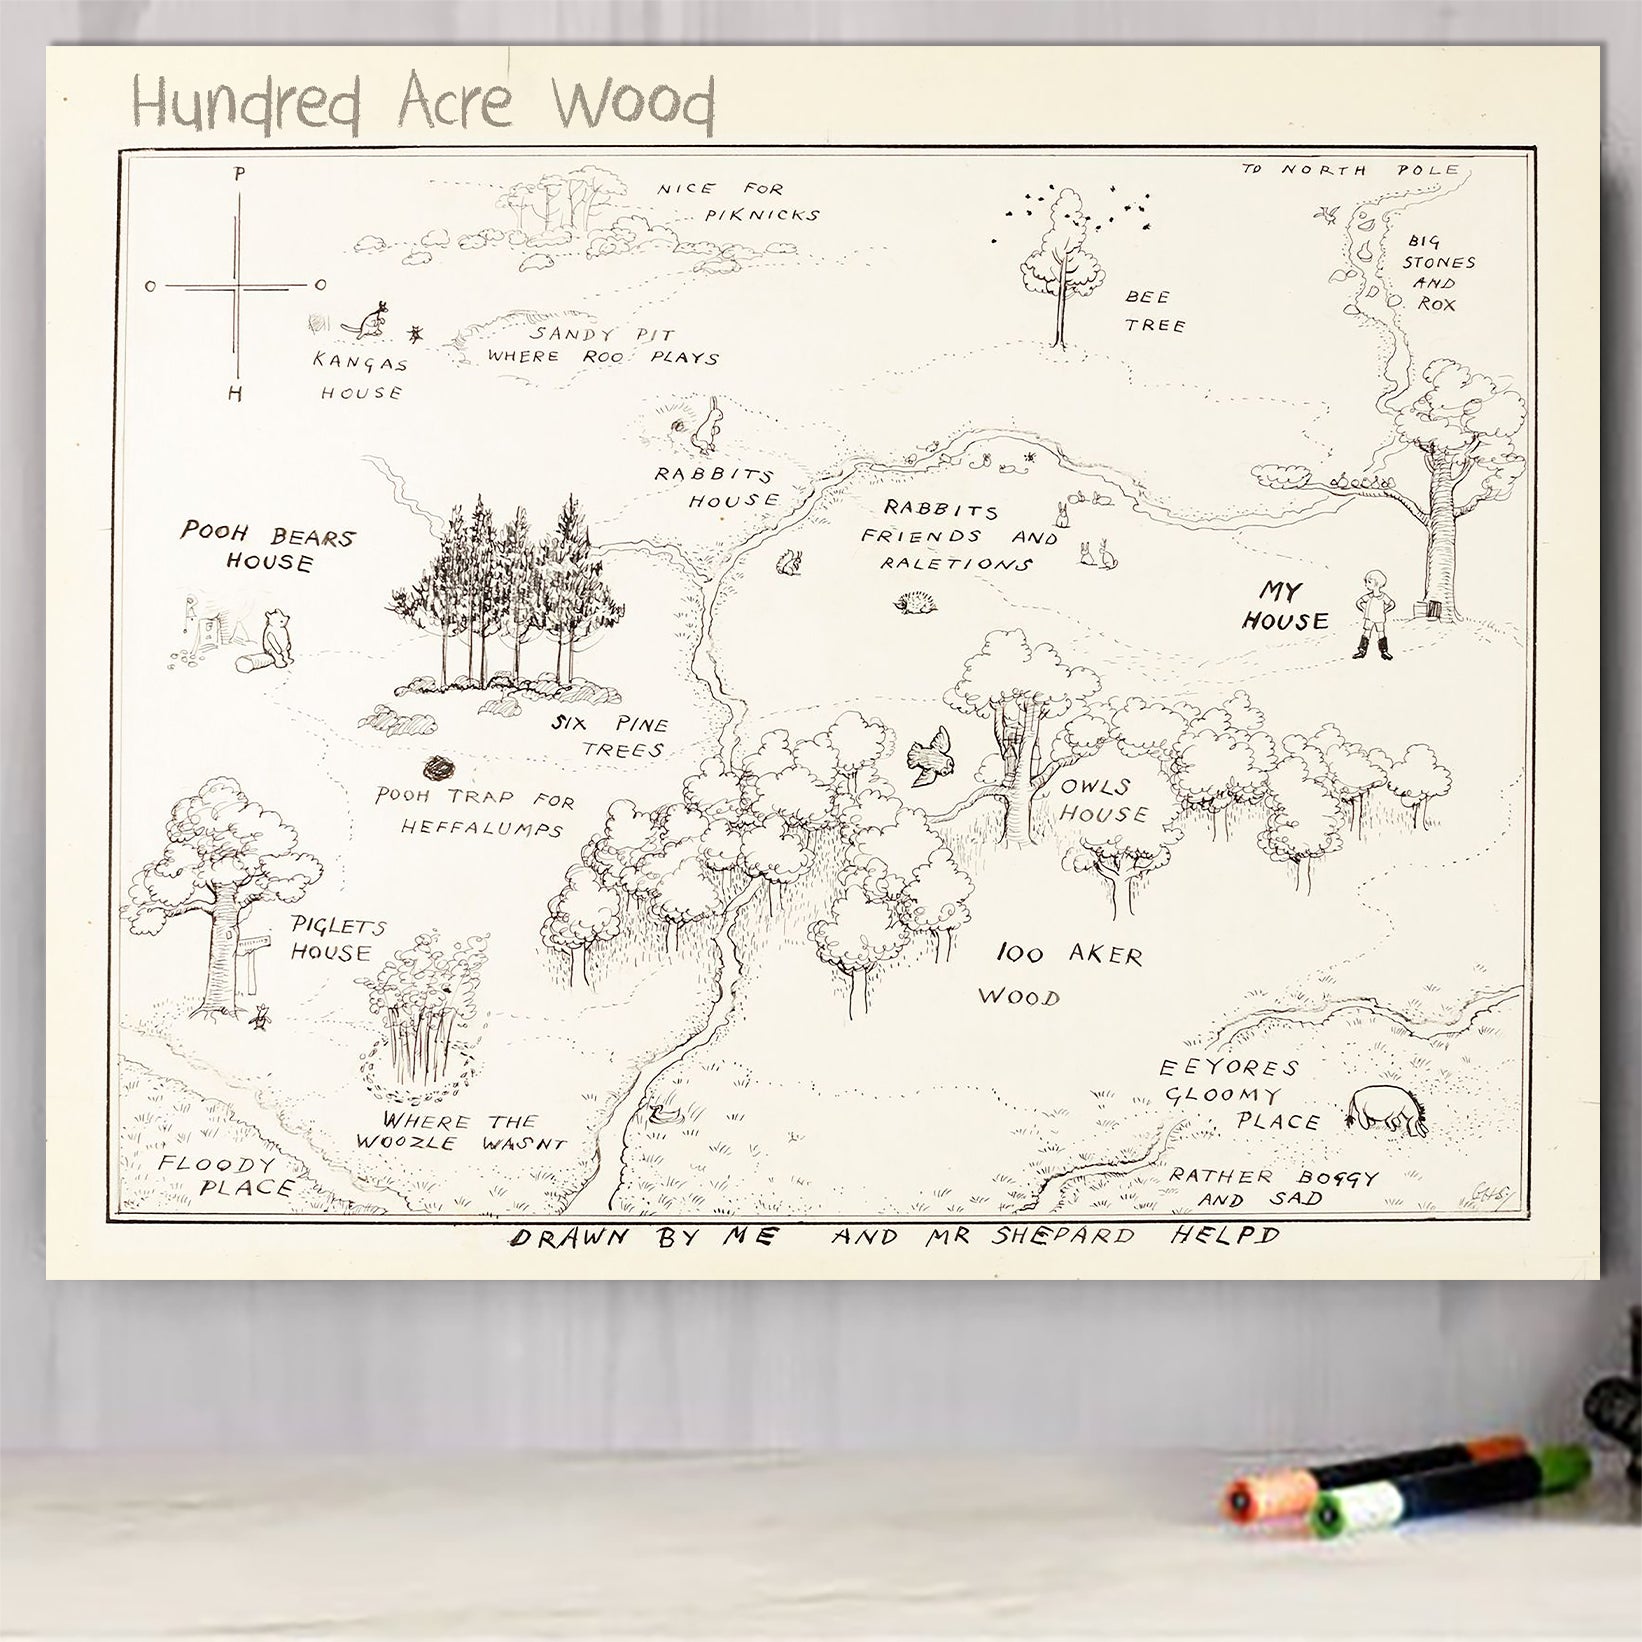 Hundred Acre Wood
P
O O
H
NICE FOR
PIKNICKS
TO NORTH POLE
BIG
STONES
AND
ROX
BEE
TREE
KANGAS
HOUSE
SANDY PIT
WHERE ROO PLAYS
RABBITS
HOUSE
RABBITS
FRIENDS AND
RALETIONS
POOH BEARS
HOUSE
MY
HOUSE
SIX PINE
TREES
POOH TRAP FOR
HEFFALUMPS
OWLS
HOUSE
PIGLETS
HOUSE
100 AKER
WOOD
EEYORES
GLOOMY
PLACE
WHERE THE
WOOZLE WASNT
FLOODY
PLACE
RATHER BOGGY
AND SAD
DRAWN BY ME AND MR SHEPARD HELPD